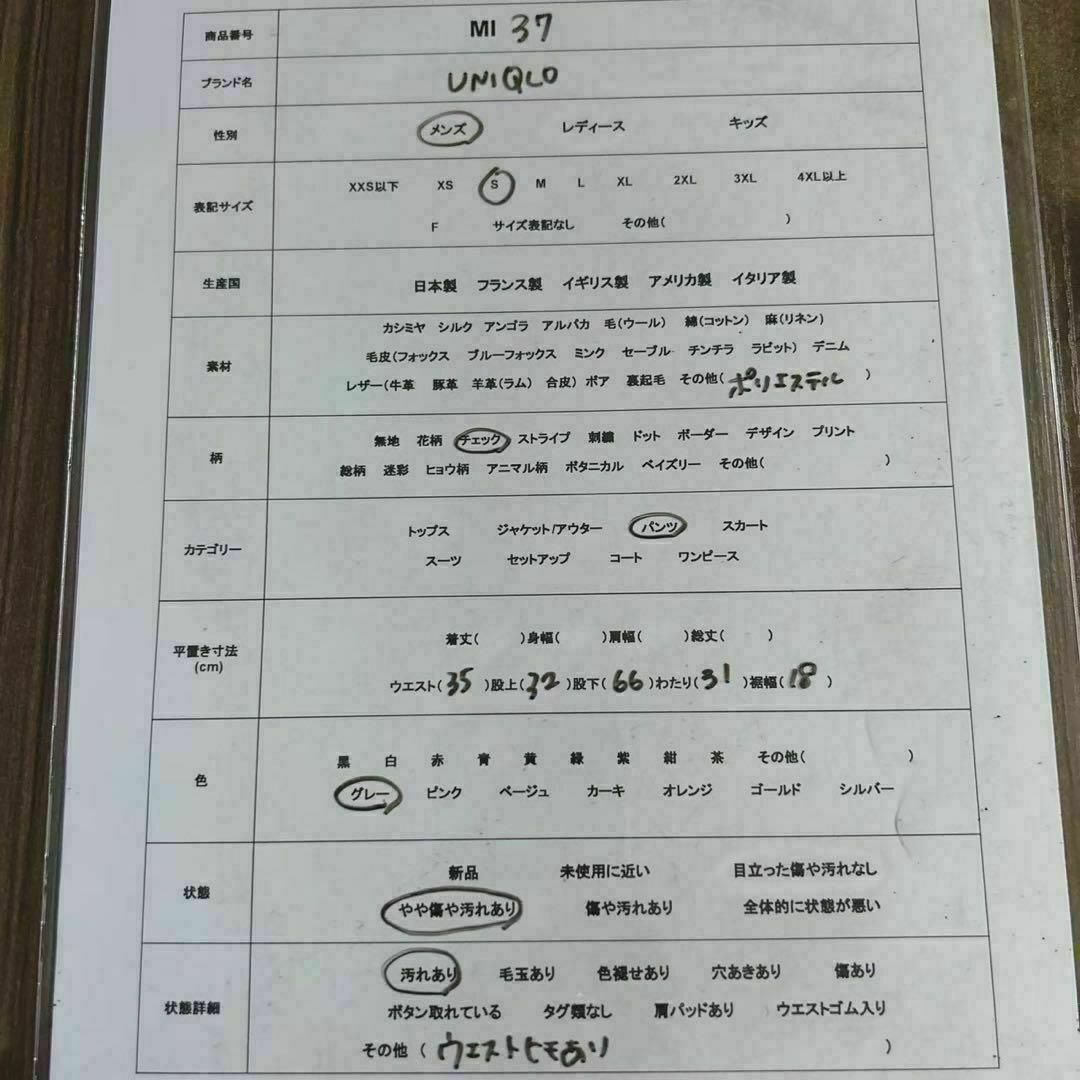 商品番号 MI 37
ブランド名 UNIQLO
性別 メンズ レディース キッズ
表記サイズ
XXS以下 XS S M L XL 2XL 3XL 4XL以上
F サイズ表記なし その他( )
生産国 日本製 フランス製 イギリス製 アメリカ製 イタリア製
素材
カシミヤ シルク アンゴラ アルパカ 毛(ウール) 綿(コットン) 麻(リネン)
毛皮(フォックス ブルーフォックス ミンク セーブル チンチラ ラビット) デニム
レザー(牛革 豚革 羊革(ラム) 合皮) ボア 裏起毛 その他(ポリエステル )
柄
無地 花柄 チェック ストライプ 刺繍 ドット ボーダー デザイン プリント
総柄 迷彩 ヒョウ柄 アニマル柄 ボタニカル ペイズリー その他( )
カテゴリー
トップス ジャケット/アウター パンツ スカート
スーツ セットアップ コート ワンピース
平置き寸法
(cm)
着丈( )身幅( )肩幅( )総丈( )
ウエスト(35)股上(32)股下(66)わたり(31)裾幅(18)
色
黒 白 赤 青 黄 緑 紫 紺 茶 その他( )
グレー ピンク ベージュ カーキ オレンジ ゴールド シルバー
状態
新品 未使用に近い 目立った傷や汚れなし
やや傷や汚れあり 傷や汚れあり 全体的に状態が悪い
状態詳細
汚れあり 毛玉あり 色褪せあり 穴あきあり 傷あり
ボタン取れている タグ類なし 肩パッドあり ウエストゴム入り
その他 ( ウエストヒモあり )